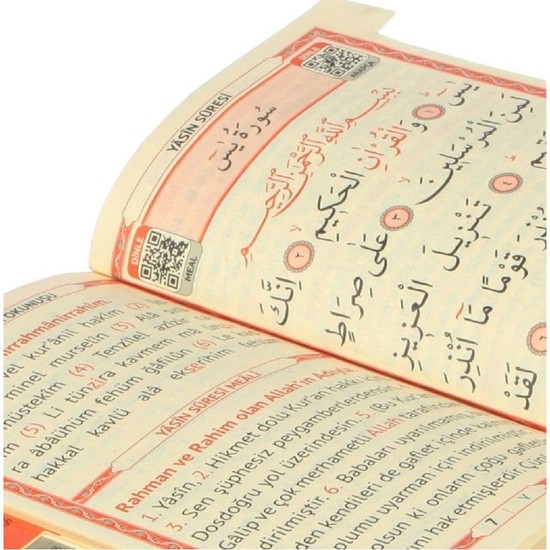 YÂSÎN SÛRESİ
DİNLE
ARAPÇA
سُورَةُ يٰسٓ
DİNLE
MEAL
بِسْمِ اللّٰهِ الرَّحْمٰنِ الرَّحٖيمِ
يٰسٓ ١ وَالْقُرْاٰنِ الْحَكٖيمِ ٢ اِنَّكَ
لَمِنَ الْمُرْسَلٖينَ ٣ عَلٰى صِرَاطٍ
٤ تَنْزٖيلَ الْعَزٖيزِ
قَوْمًا مَٓا اُنْذِرَ
٦ لَقَدْ
OKUNUŞU
irrahmânirrahîm.
vel kur'ânil hakîm (2)
minel murselîn (3) Alâ
mustekîm (4) Tenzîlel azîzir
(5) Li tunzira kavmem mâ
ra âbâuhüm fehüm ğâfilûn (6) Le
hakkal kavlü alâ ekserihim fehüm
YÂSÎN SÛRESİ MEALİ
Rahman ve Rahim olan Allah'ın Adıyla
1. Yâsîn, 2. Hikmet dolu Kur'an hakkı için
3. Sen şüphesiz peygamberlerdensin.
Dosdoğru yol üzerindesin. 5. (Bu Kur'an)
Gâlip ve çok merhametli Allah tarafından
dirilmiştir 6. Babaları uyarılmamış,
den kendileri de gaflet içinde kalmış
plumu uyarman için indirilmiştir.
olsun ki onların çoğu gafletin
nı hak etmişlerdir. Çün
7